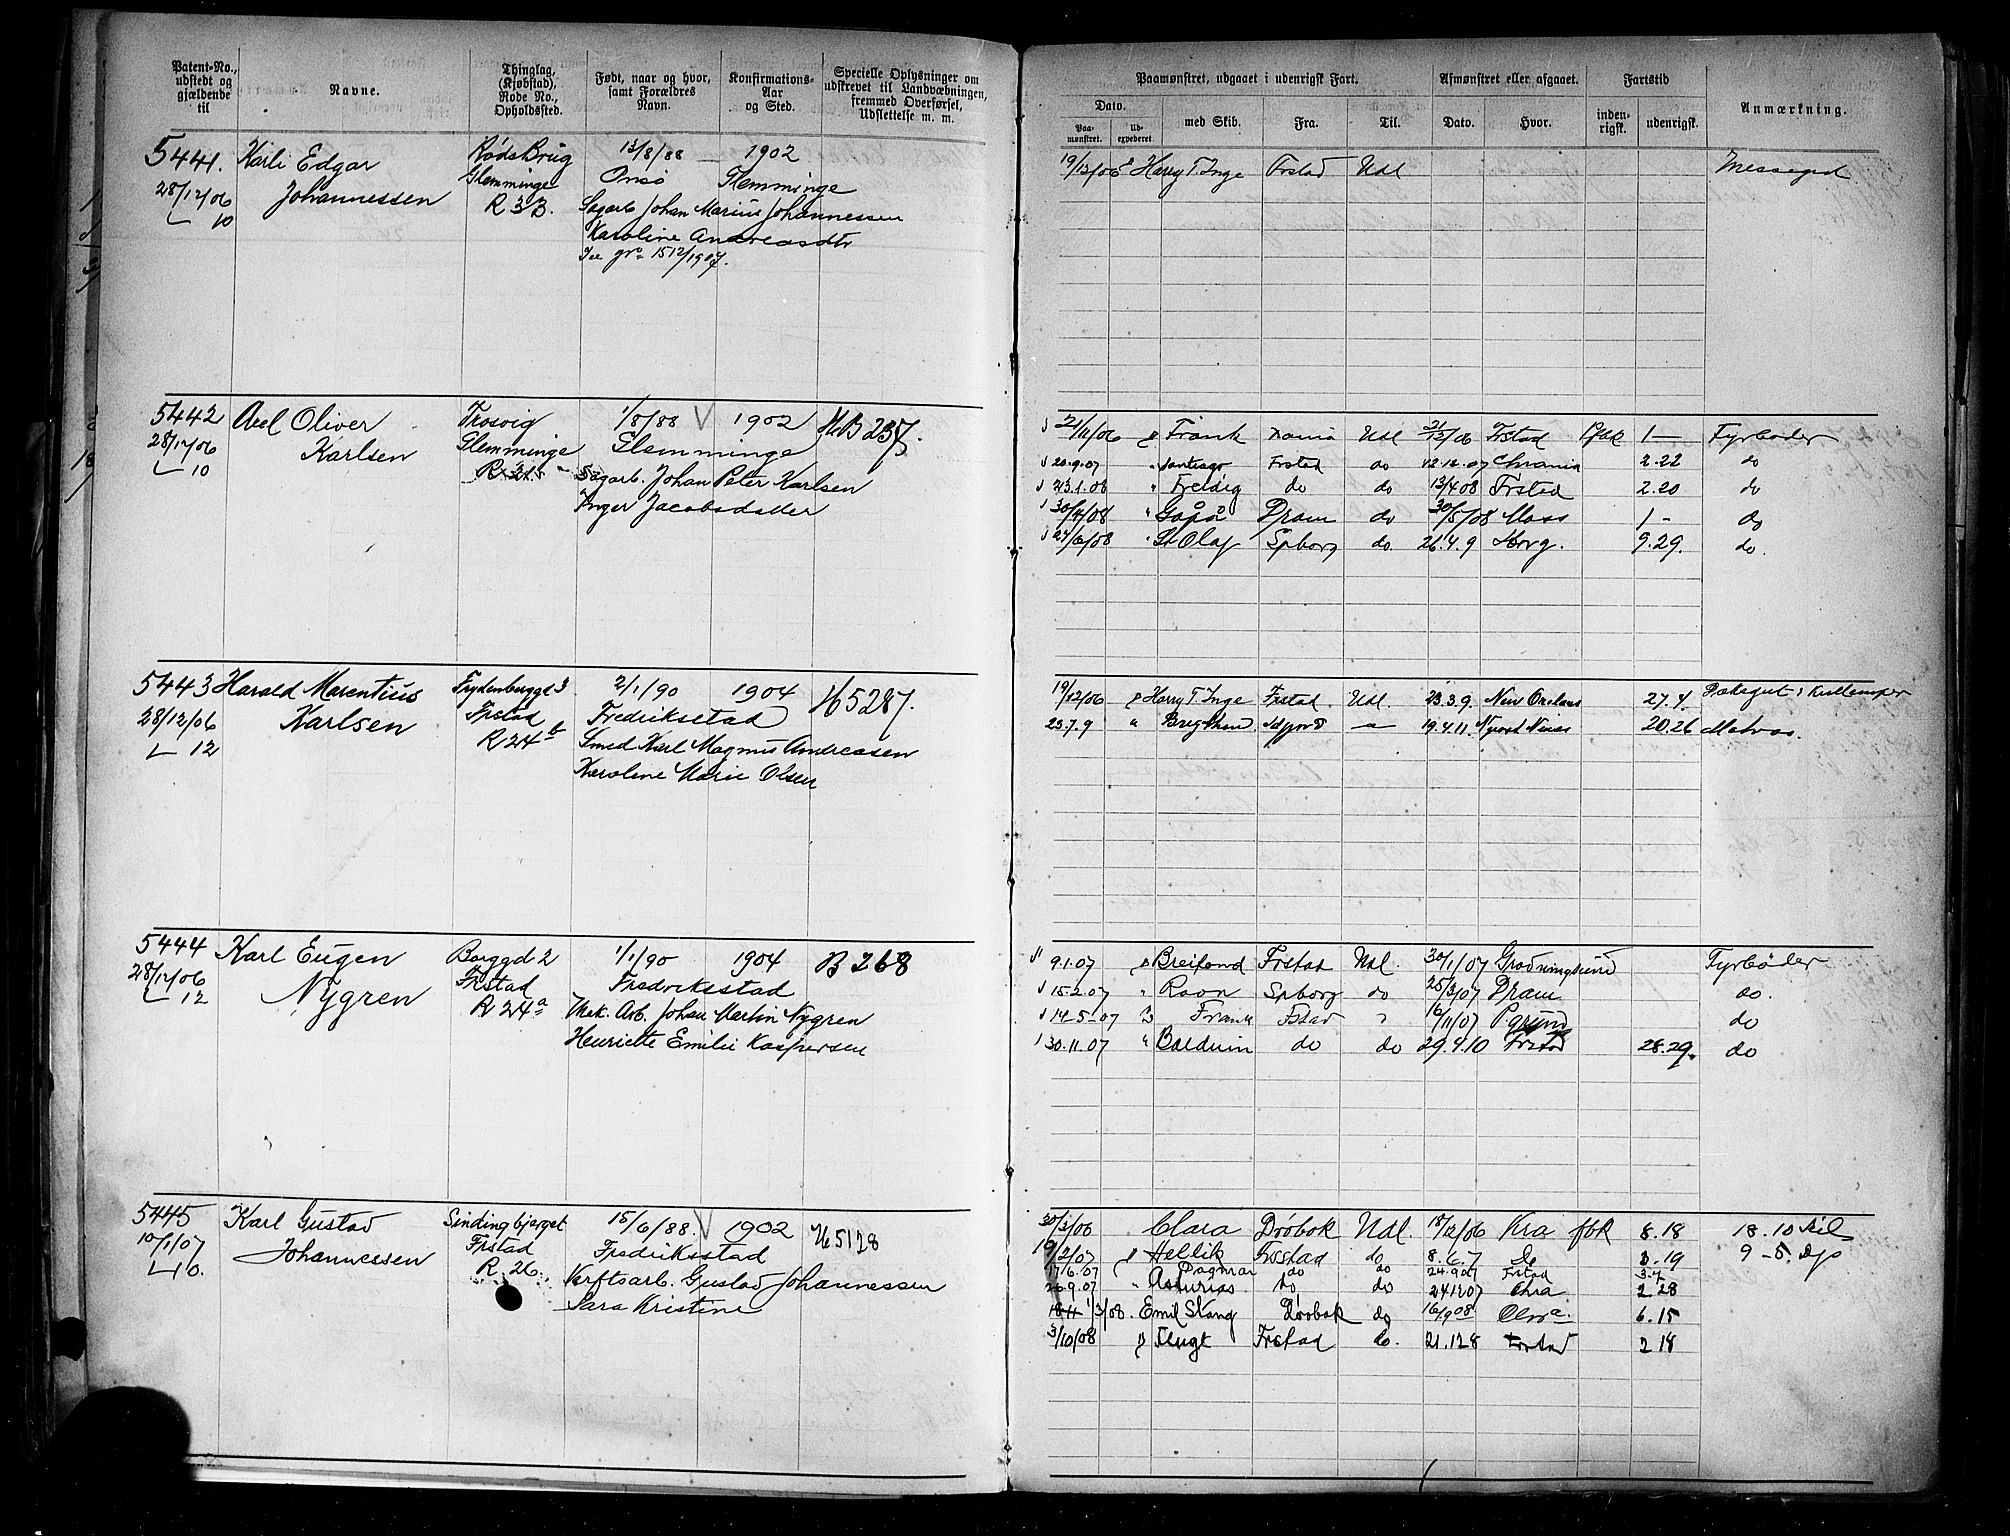 Patent-No., udstedt og gjældende til
Navne.
Thinglag, (Kjøbstad), Rode No., Opholdssted.
Født, naar og hvor, samt Forældres Navn.
Konfirmations-Aar og Sted.
Specielle Oplysninger om udskrevet til Landvæbningen, fremmed Overførsel, Udslettelse m. m.
Paamønstret, udgaaet i udenrigsk Fart.
Afmønstret eller afgaaet.
Fartstid
Anmærkning.
Dato.
Paa-mønstret.
Ud-expederet.
med Skib.
Fra.
Til.
Dato.
Hvor.
inden-rigsk.
udenrigsk.
5441. Karli Edgar Røds Brug 13/8/88 1902
28/12/06 Johannessen Glemminge Onsø Glemminge
10 R 3B. Sagarb Johan Marius Johannessen
Karoline Andreasdtr
Se gr. 1512/1907.
19/12/06 Harry T Inge Frstad Udl Messegut
5442 Axel Oliver Trosvig 1/8/88 V 1902
28/12/06 Karlsen Glemminge Glemminge
10 Sagarb. Johan Peter Karlsen
Inger Jacobsdatter
22/11/06 Frank Udl 21/12/06 Frstad 1 – Fyrbøder
20.9.07 Santiago Frstad do 12.12.07 Chrania 2.22 do
23.1.08 do do 13/4 08 Frstad 2.20 do
30/4/08 Dram do 30/5/08 Moss 1 - do
27/6/08 St Olaf Spborg do. 26.4.9 9.29. do.
5443 Harald Marentius Frydenberggd 3 2/1/90 1904 H 5287.
28/12/06 Karlsen Frstad Fredriksstad
12 R 24 b Smed Karl Magnus Andreassen
Karoline Marie Olsen
19/12/06 Harry T Inge Frstad. Udl. 23.3.9 New Orleans 27.4.
23.7.9 19.4.11. 20.26 Matros.
5444 Karl Eugen Borggd 2 1/1/90 1904 B 268
28/12/06 Nygren Frstad Fredriksstad
12 R 24 a Mek. Arb. Johan Martin Nygren
Henriette Emilie Kaspersen
9.1.07 Breifond Frstad Udl. 30/1/07 Fyrbøder
15.2.07 Ravn Spborg do 25/3/07 Dram do.
14-5-07 Frank Fstad 16/11/07 Pgrund do
30.11.07 Balduin do do 29.4.10 Frstad 28.29. do
5445 Karl Gustav Sindingbjerget 15/6/88. V 1902 H 5128
10/1/07 Johannessen Frstad Fredriksstad
10. R. 26. Verftsarb. Gustav Johannessen
Sara Kristine
30/3/06 Clara Drøbak Udl. 18/12/06 Kra 8.18 18.10
19/2/07 Hellik Frstad do 8.6.7 3.19
17/6.07 Dagmar do do 24.907 Frstad 3.7
26.9.07 Asturias do do 241207 Chra 2 28
1/3/08. Emil Stang Drøbak do 16/9 08 6.15
3/10/08 Flugt Frstad do. 21.128 Frstad 2 18